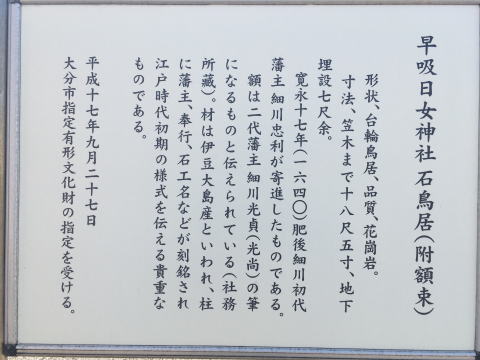 早吸日女神社 石鳥居(附額束)
形状、台輪鳥居、品質、花崗岩。
寸法、笠木まで十八尺五寸、地下
埋設七尺余。
寛永十七年(一六四〇)肥後細川初代
藩主 細川忠利が寄進したものである。
額は二代藩主細川光貞(光尚)の筆
になるものと伝えられている(社務
所藏)。材は伊豆大島産といわれ、柱
に藩主、奉行、石工名などが刻銘され
江戸時代初期の様式を伝える貴重な
ものである。
平成十七年九月二十七日
大分市指定有形文化財の指定を受ける。